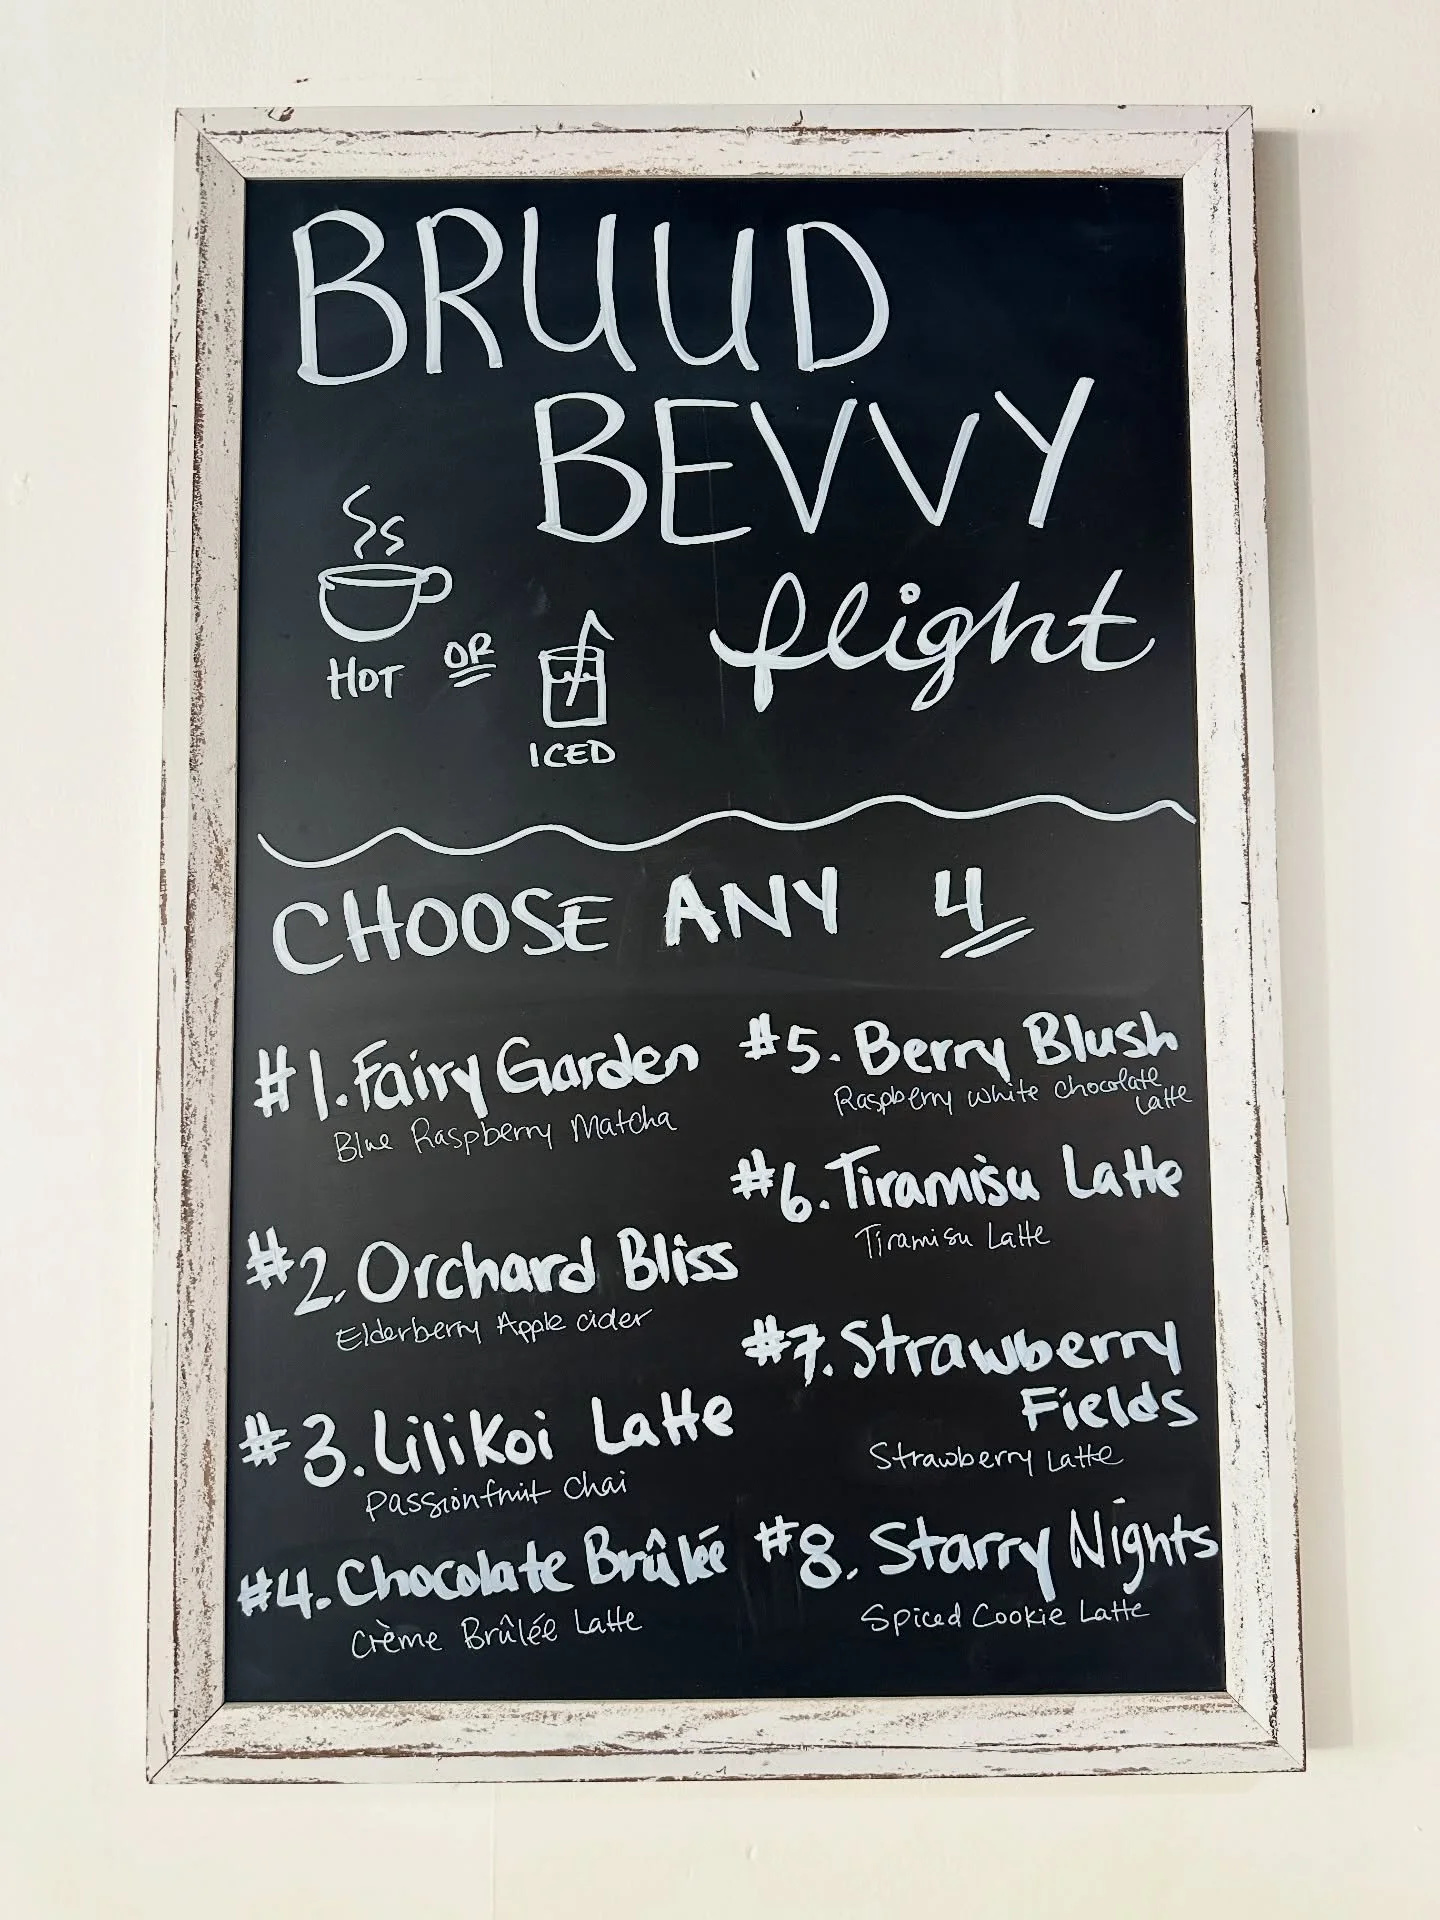 BRUUD
BEVVY
flight
HOT OR
ICED
CHOOSE ANY 4
#1. Fairy Garden
Blue Raspberry Matcha
#2. Orchard Bliss
Elderberry Apple cider
#3. Lilikoi Latte
Passionfruit Chai
#4. Chocolate Brûlée
Crème Brûlée Latte
#5. Berry Blush
Raspberry White Chocolate
Latte
#6. Tiramisu Latte
Tiramisu Latte
#7. Strawberry
Fields
Strawberry Latte
#8. Starry Nights
Spiced Cookie Latte